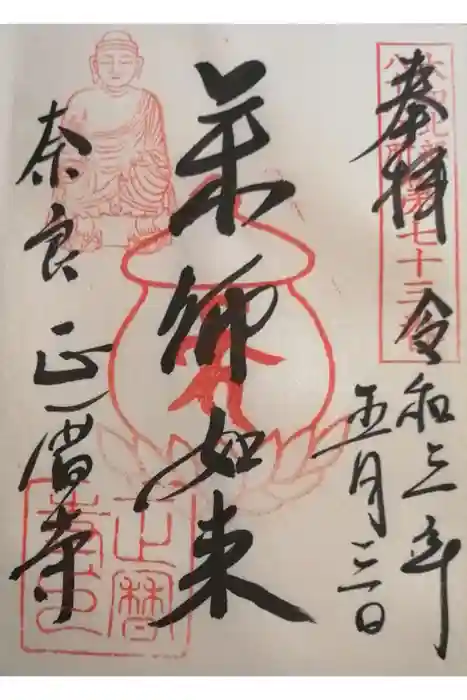 奉拝
令和三年
五月三日
薬師如来
奈良 正暦寺
七十三番
正暦
寺印